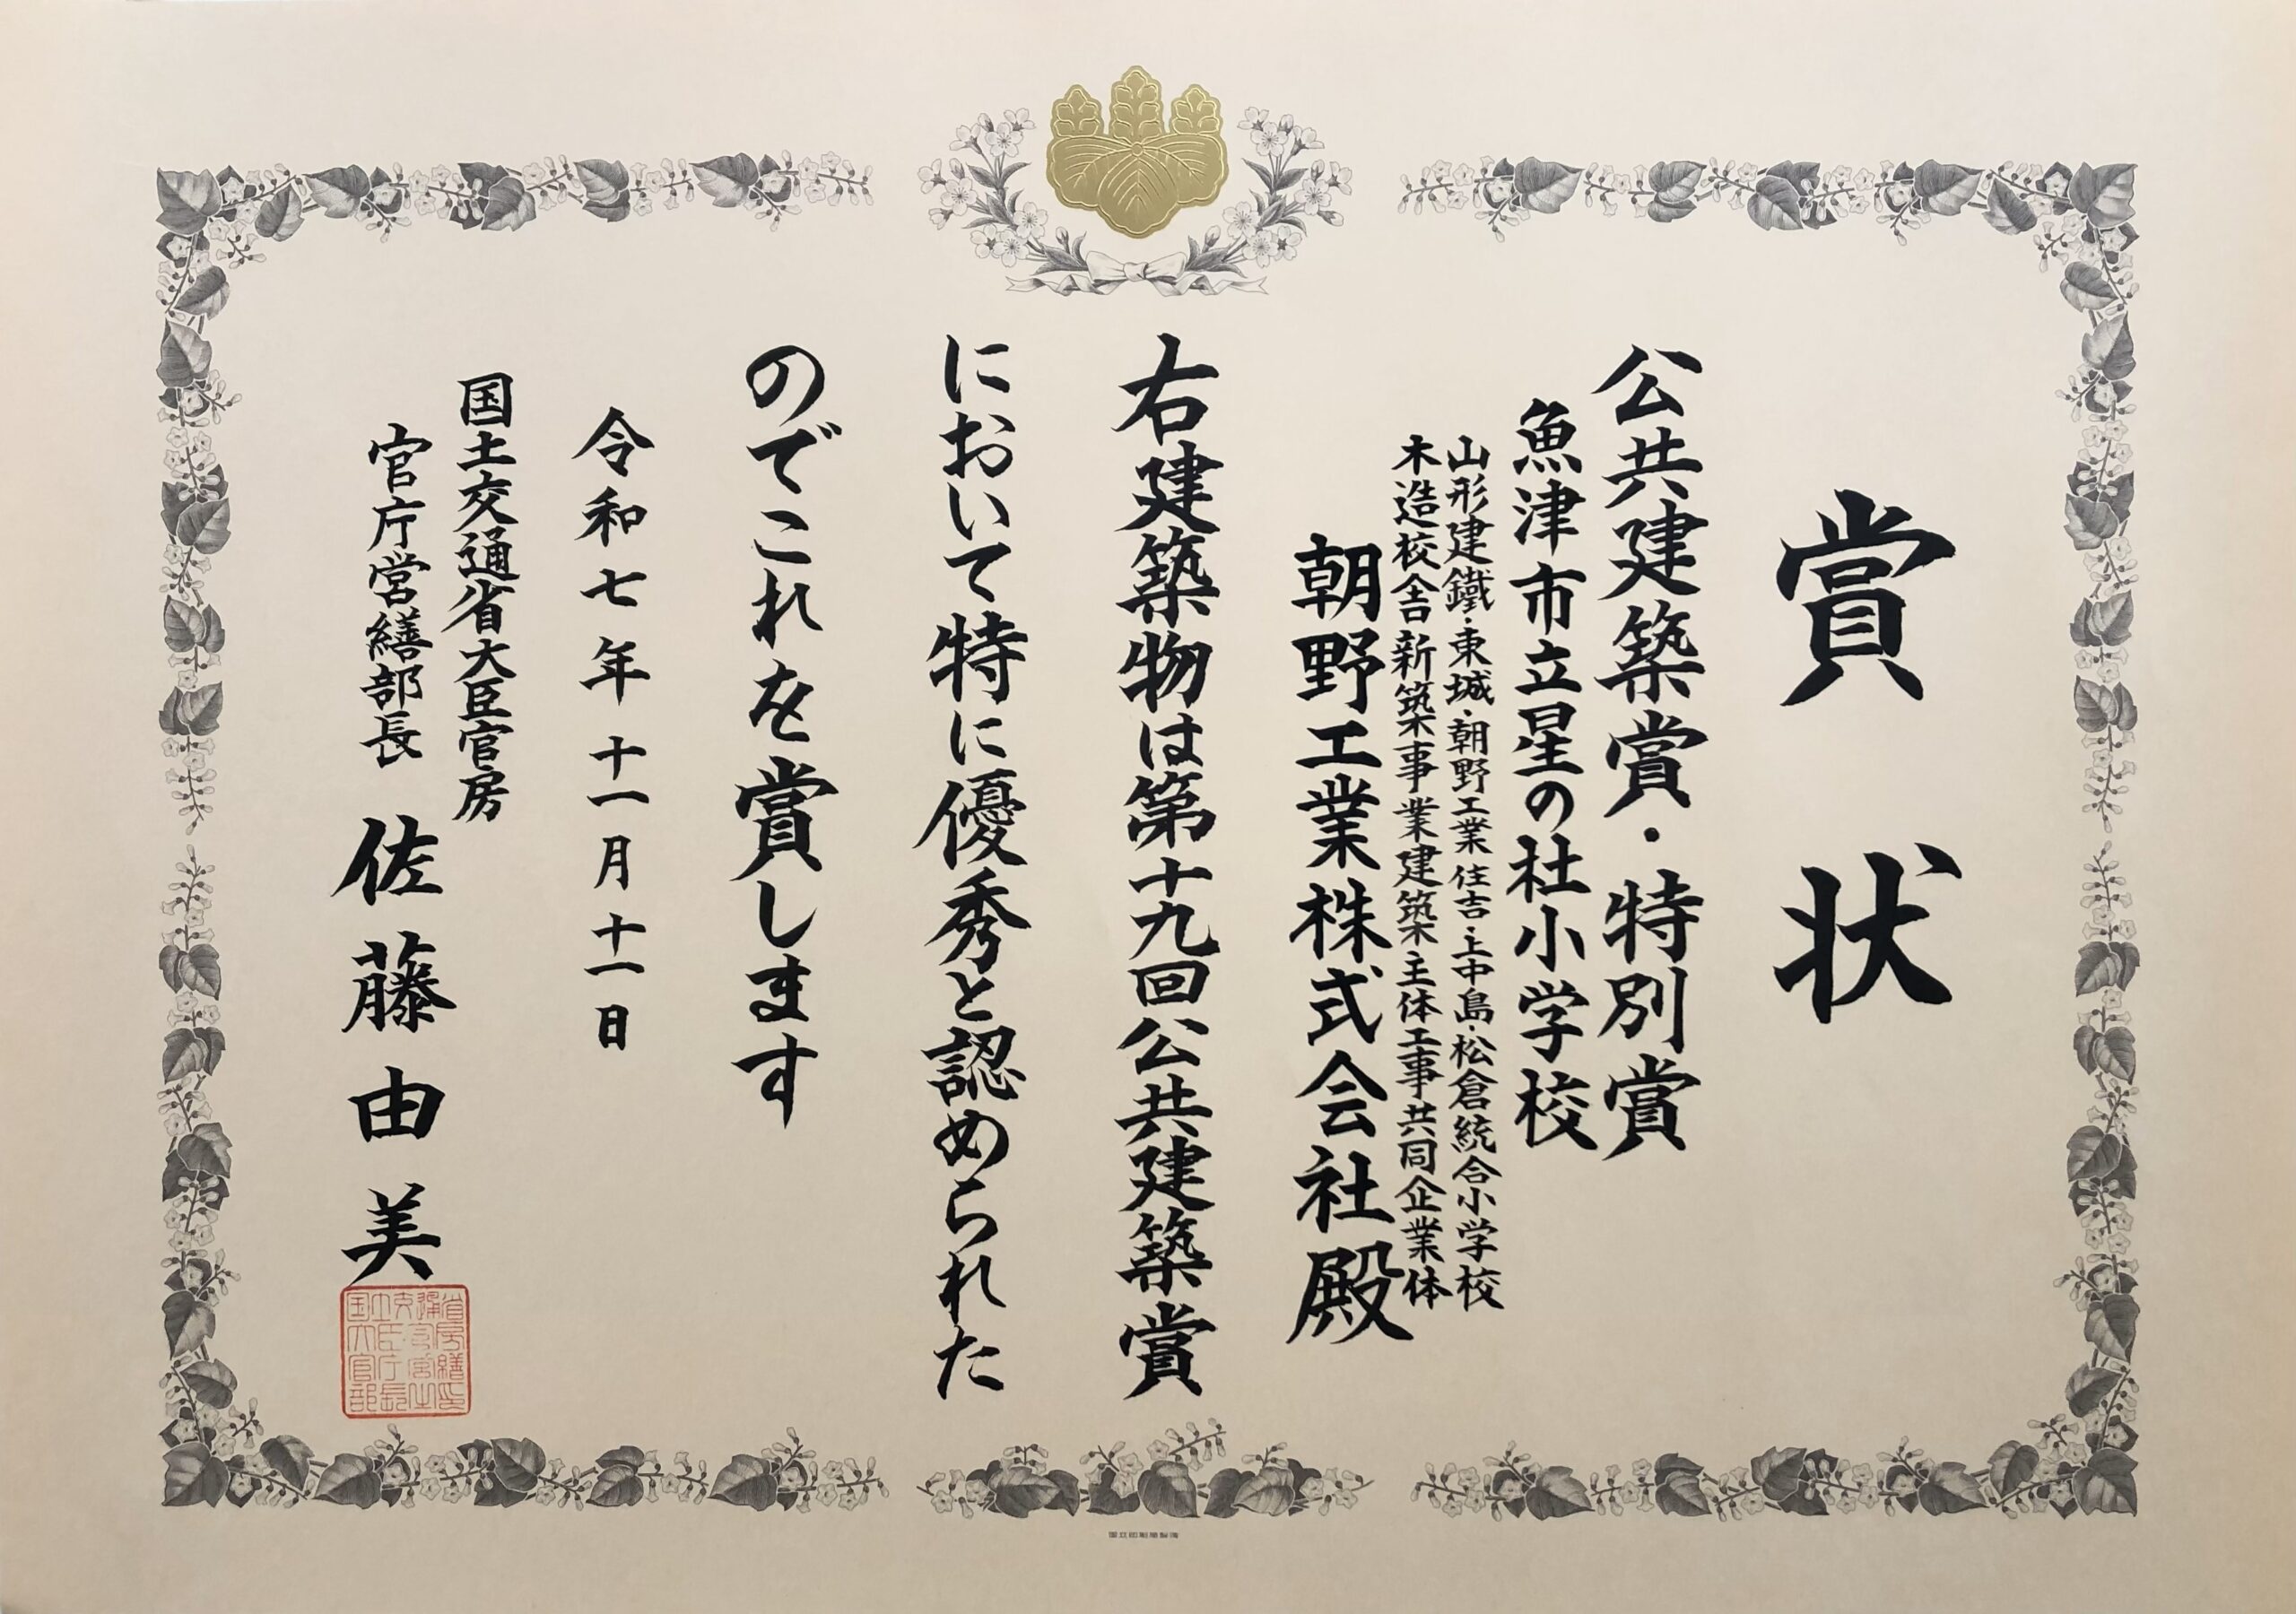 賞状
公共建築賞・特別賞
魚津市立星の杜小学校
山形建鐵・東城・朝野工業 住吉・上中島・松倉統合小学校
木造校舎新築事業建築主体工事共同企業体
朝野工業株式会社殿
右建築物は第十九回公共建築賞
において特に優秀と認められた
のでこれを賞します
令和七年十一月十一日
国土交通省大臣官房
官庁営繕部長 佐藤由美